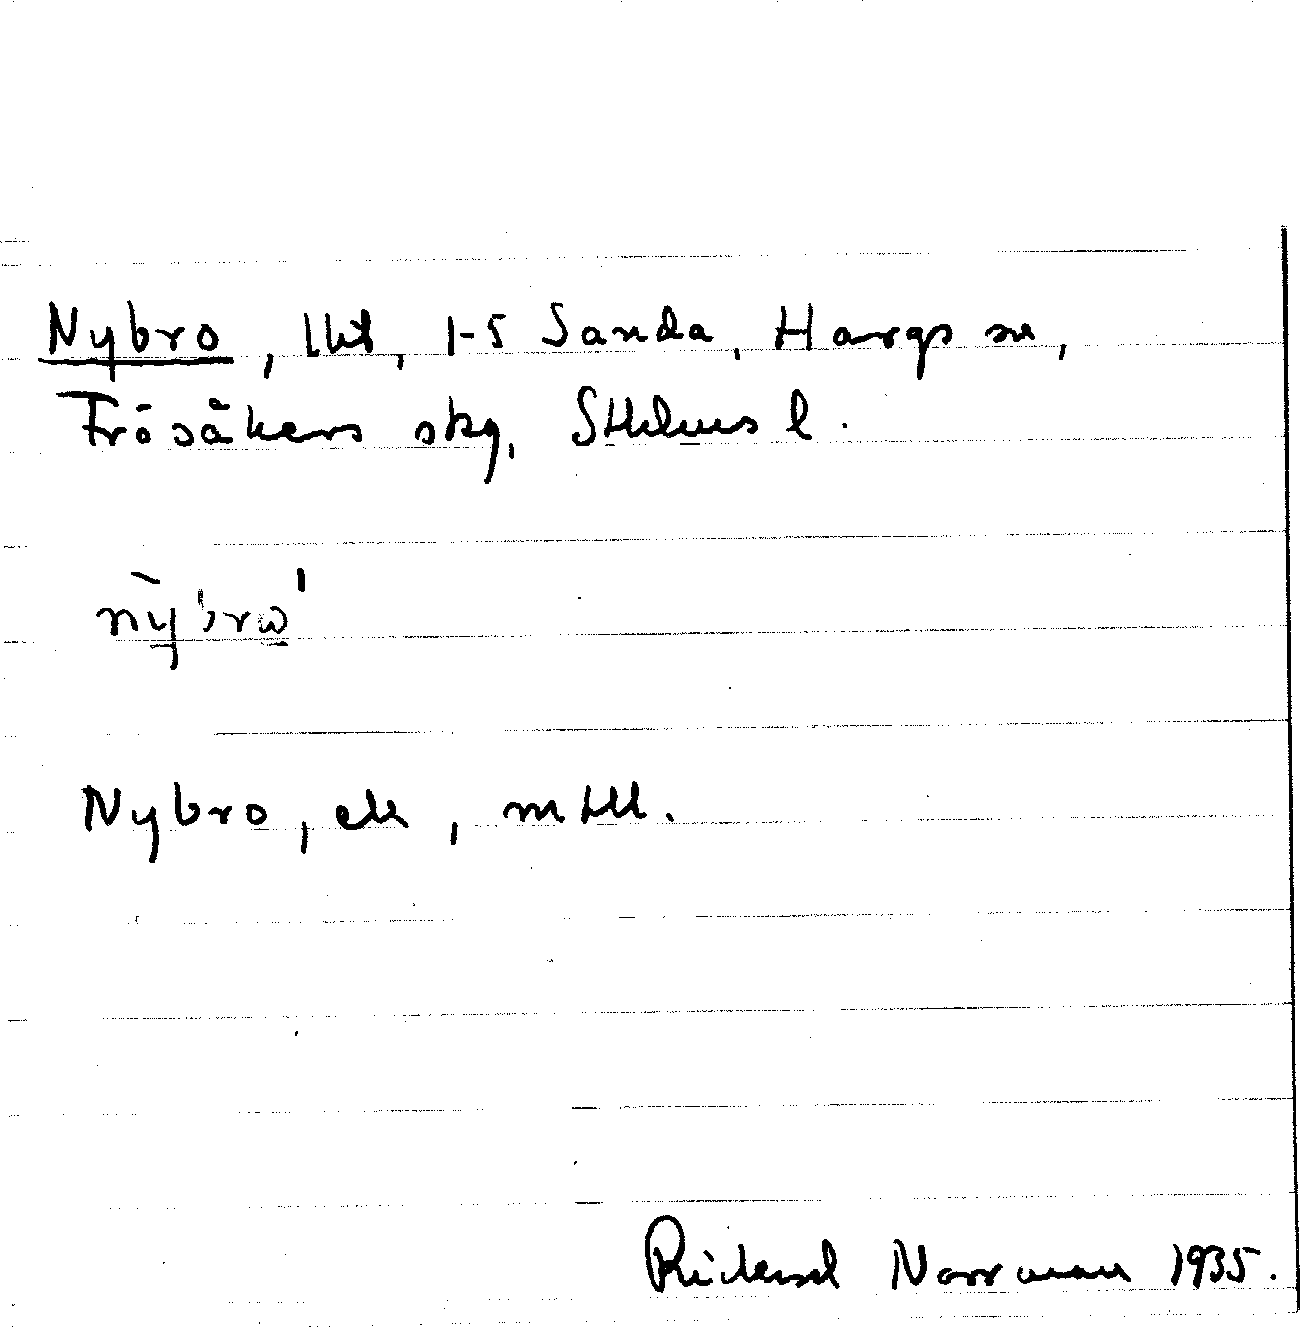 Nybro, lht, 1-5 Sanda, Hargs sn,
Frösåkers skg, Sthlms l.
Nybro, ek, mtbl.
Rickard Norrman 1935.